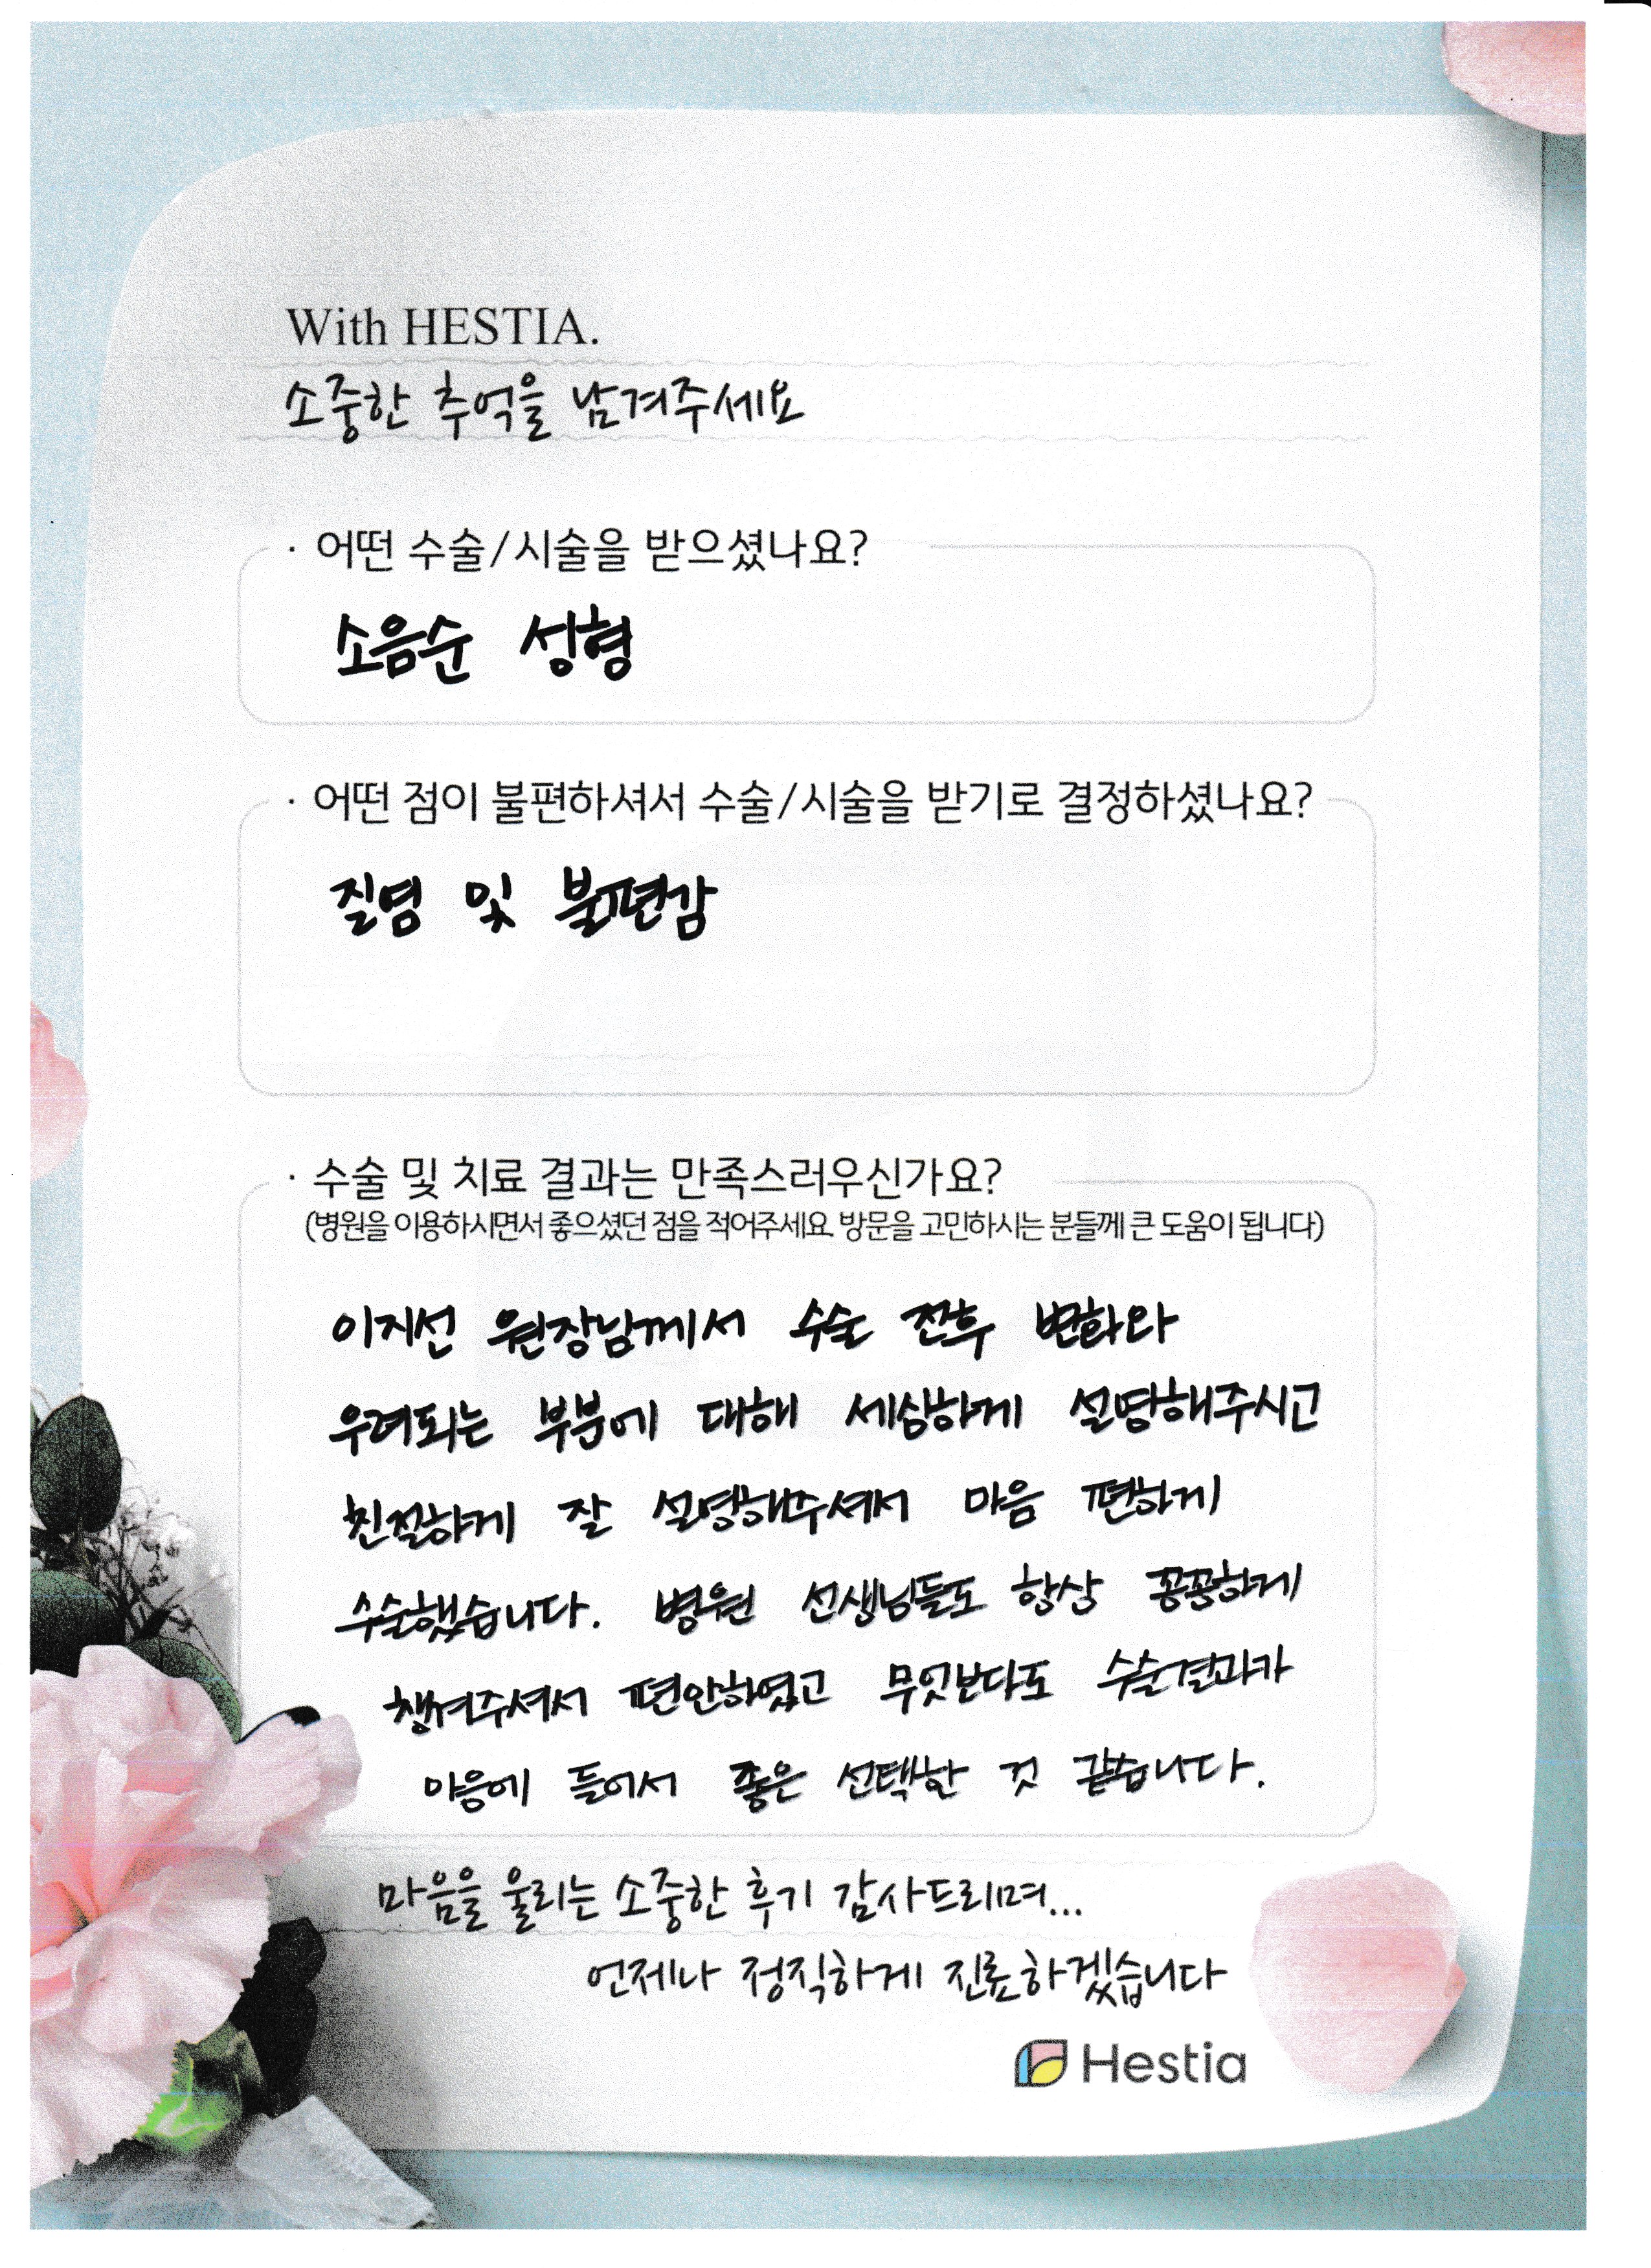 With HESTIA.
소중한 추억을 남겨주세요
· 어떤 수술/시술을 받으셨나요?
소음순 성형
· 어떤 점이 불편하셔서 수술/시술을 받기로 결정하셨나요?
질염 및 불편감
· 수술 및 치료 결과는 만족스러우신가요?
(병원을 이용하시면서 좋으셨던 점을 적어주세요. 방문을 고민하시는 분들께 큰 도움이 됩니다)
이지선 원장님께서 수술 전후 변화와
우려되는 부분에 대해 세심하게 설명해주시고
친절하게 잘 설명해주셔서 마음 편하게
수술했습니다. 병원 선생님들도 항상 꼼꼼하게
챙겨주셔서 편안하였고 무엇보다도 수술결과가
마음에 들어서 좋은 선택한 것 같습니다.
마음을 울리는 소중한 후기 감사드리며...
언제나 정직하게 진료하겠습니다
Hestia